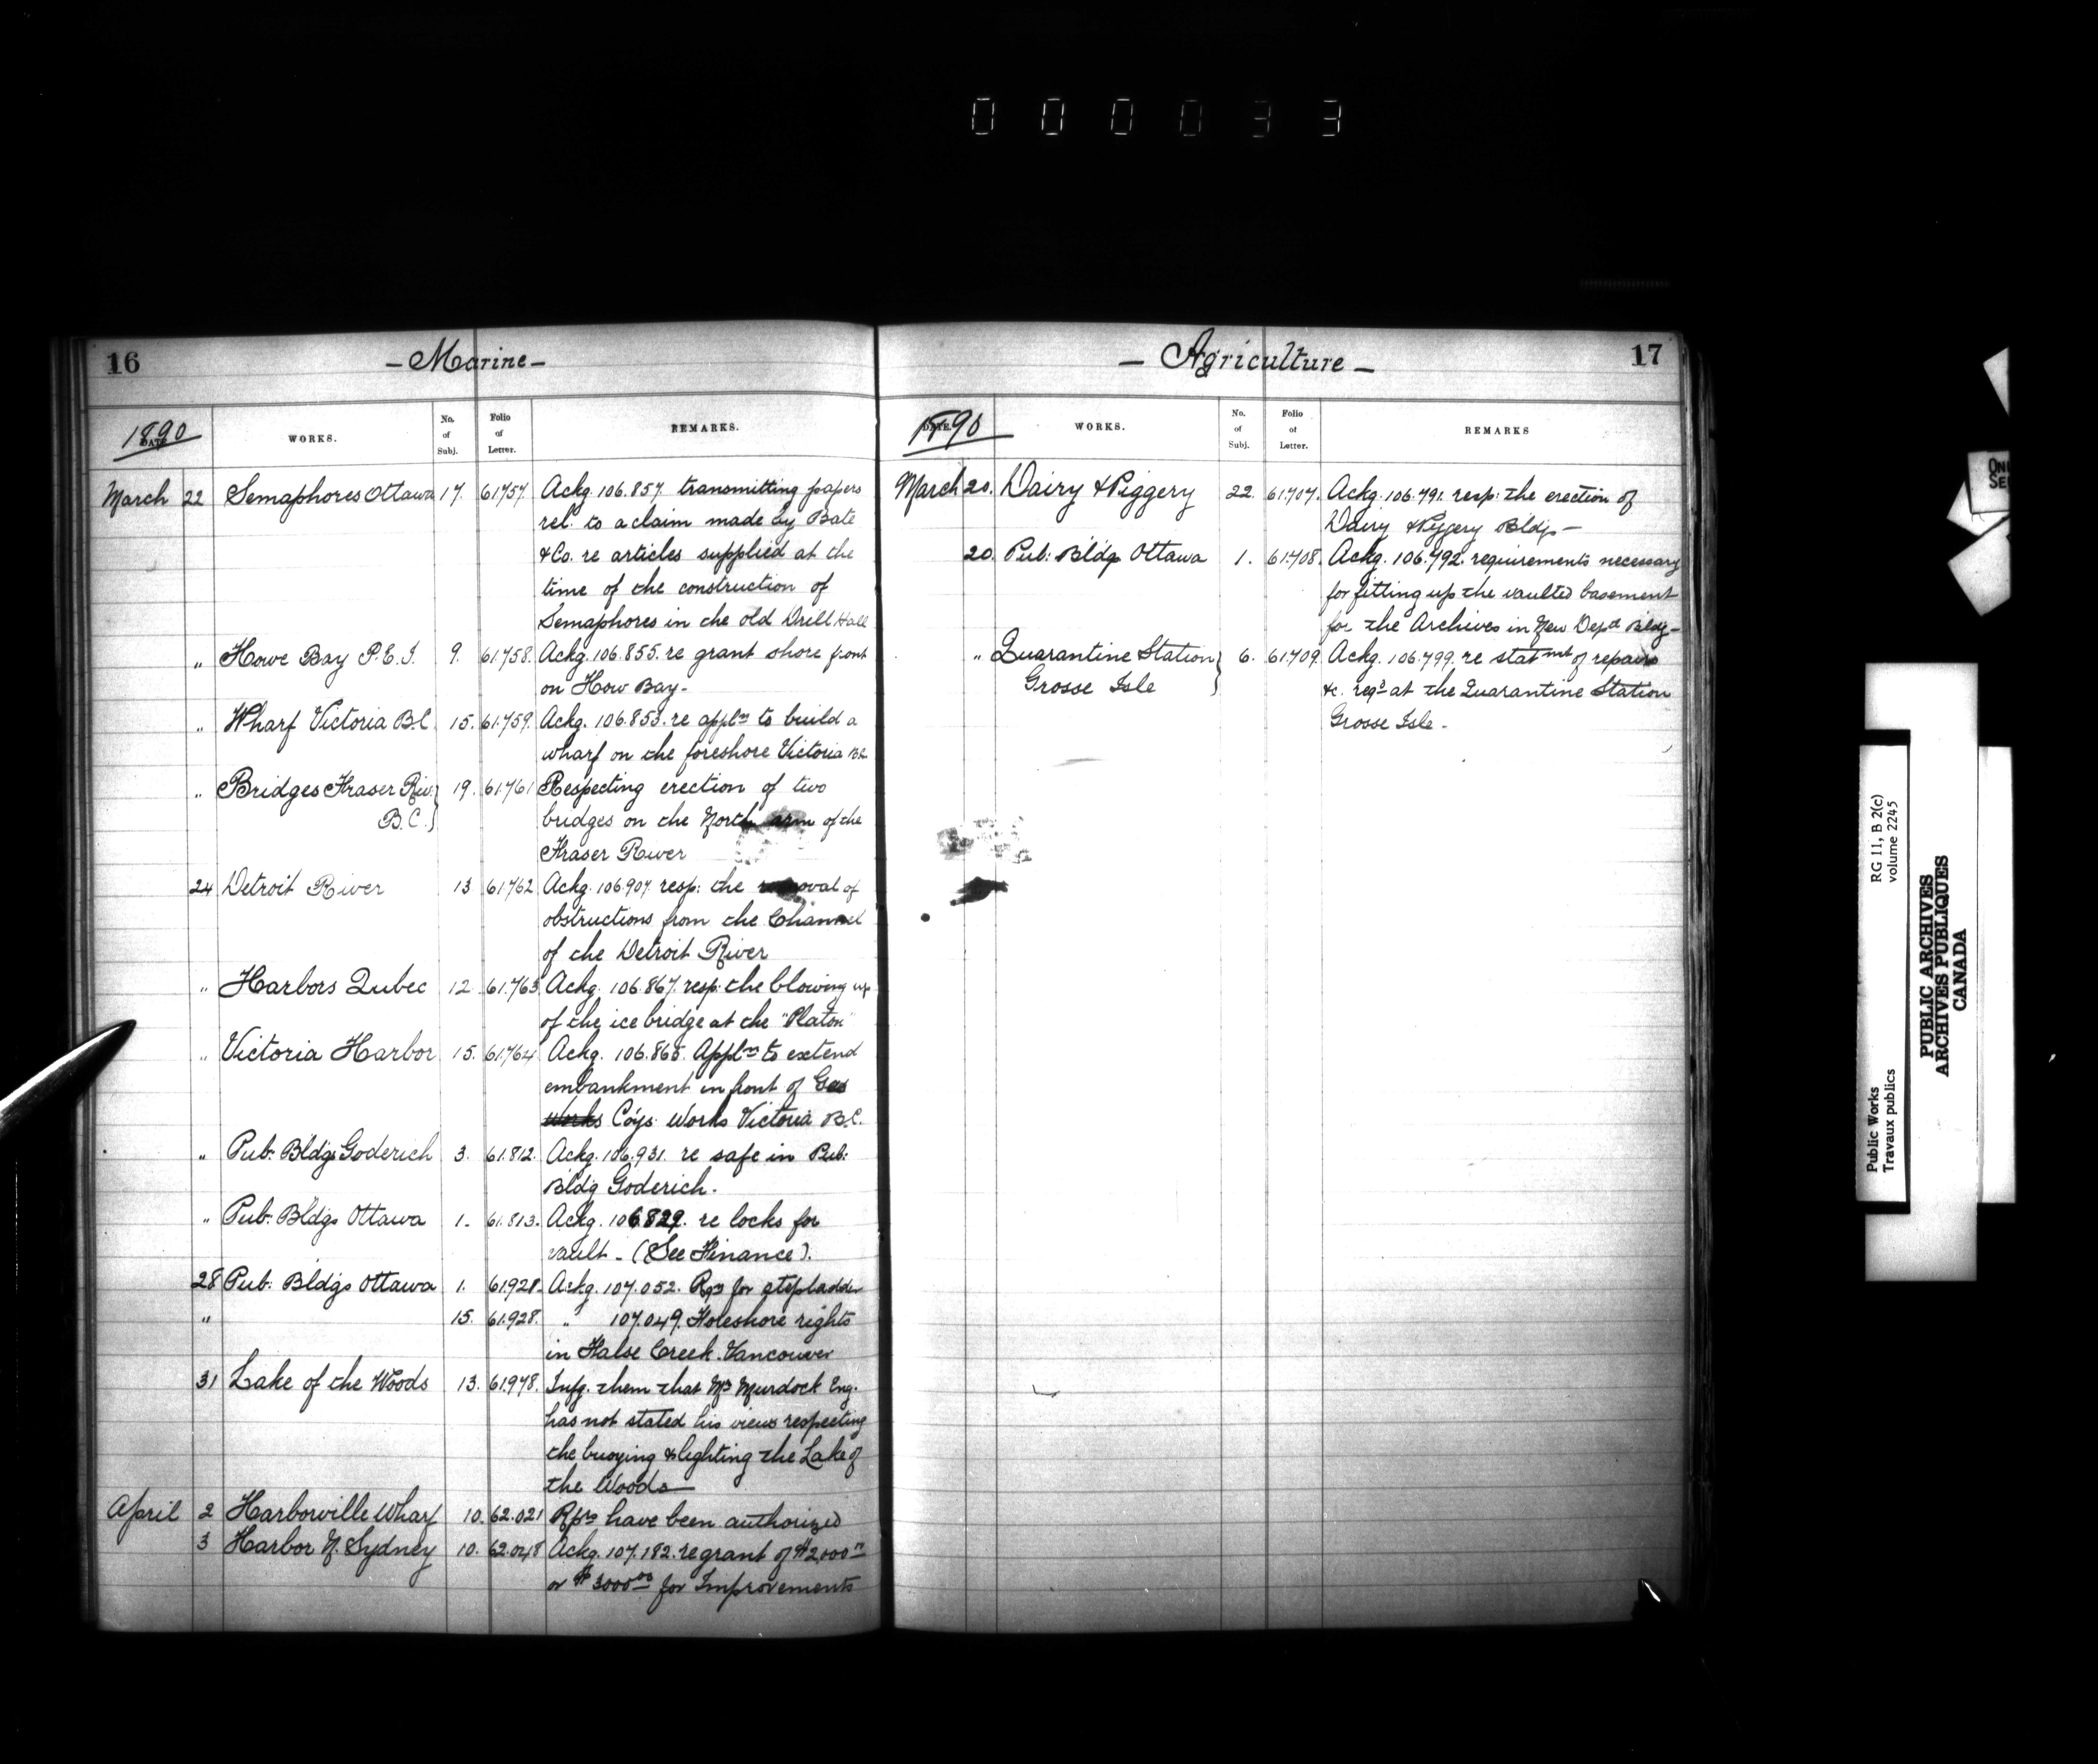 000033
16
- Marine -
1890
DATE
WORKS.
No. of Subj.
Folio of Letter.
REMARKS.
March 22 Semaphores Ottawa 17. 61757. Ackg. 106.857. transmitting papers
rel. to a claim made by Bate
& Co. re articles supplied at the
time of the construction of
Semaphores in the old Drill Hall
" Howe Bay P.E.I. 9. 61758. Ackg. 106.855. re grant shore front
on How Bay-
" Wharf Victoria B.C. 15. 61759. Ackg. 106.853. re appln to build a
wharf on the foreshore Victoria B.C.
" Bridges Fraser Riv. 19. 61761 Respecting erection of two
B.C. bridges on the North arm of the
Fraser River
24 Detroit River 13 61762 Ackg. 106.907. resp: the removal of
obstructions from the Channel
of the Detroit River
" Harbors Qubec 12. 61.763 Ackg. 106.867. resp: the blowing up
of the ice bridge at the "Platon"
" Victoria Harbor 15. 61764 Ackg. 106.865. Appln to extend
embankment in front of Gas
Works Coys Works Victoria B.C.
" Pub: Bldgs Goderich 3. 61.812. Ackg. 106.931. re safe in Pub:
Bldg Goderich.
" Pub: Bldgs Ottawa 1. 61.813. Ackg. 106829. re locks for
vault - (See Finance).
28 Pub: Bldgs Ottawa 1. 61928. Ackg. 107.052. Rqs for stepladder
" 15. 61.928. " 107.049. Foreshore rights
in False Creek. Vancouver
31 Lake of the Woods 13. 61978. Infg. them that Mr Murdock Eng.
has not stated his views respecting
the buoying & lighting the Lake of
the Woods
April 2 Harborville Wharf 10. 62.021 Rprs have been authorized
3 Harbor N. Sydney 10. 62.048 Ackg. 107.182. re grant of $2,000
or $3000.00 for Improvements
- Agriculture -
17
1890
DATE.
WORKS.
No. of Subj.
Folio of Letter.
REMARKS
March 20. Dairy & Piggery 22. 61.707. Ackg. 106.791. resp: the erection of
Dairy & Piggery Bldgs -
20. Pub: Bldg Ottawa 1. 61.708. Ackg. 106.792. requirements necessary
for fitting up the vaulted basement
for the Archives in New Deptl Bldg -
" Quarantine Station 6. 61.709. Ackg. 106.799. re statmt of repairs
Grosse Isle &c. reqd at the Quarantine Station
Grosse Isle -
RG 11, B 2(c)
volume 2245
Public Works
Travaux publics
PUBLIC ARCHIVES
ARCHIVES PUBLIQUES
CANADA